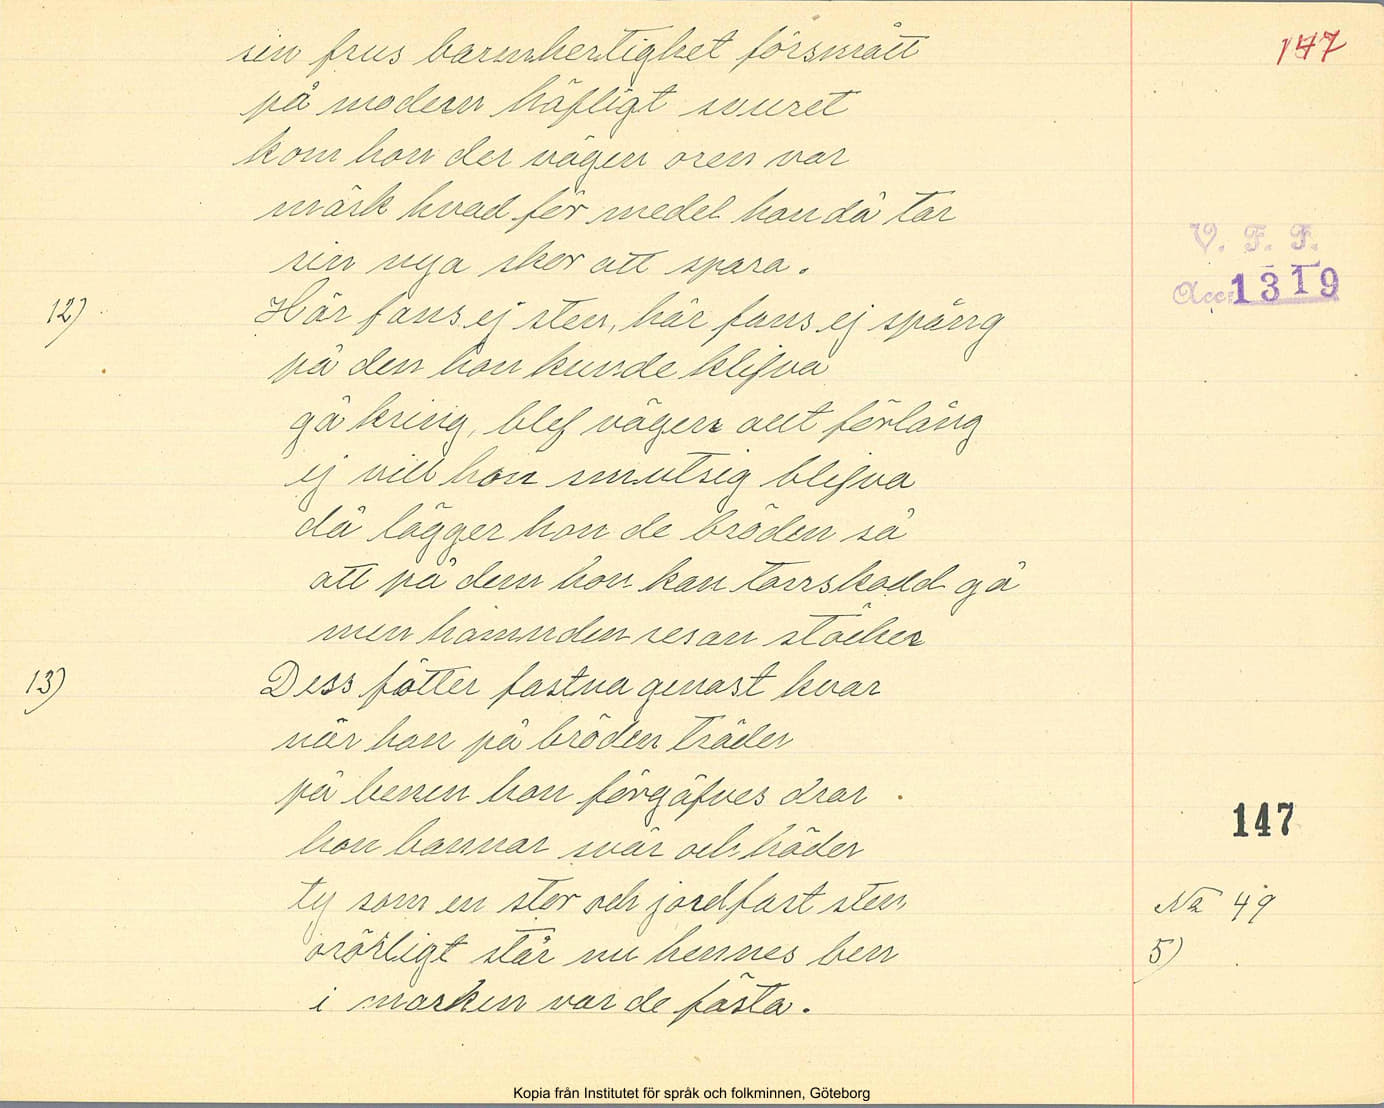 sin frus barmhertighet försmått
147
på modern häftligt svuret
kom hon der vägen oren var
märk hvad för medel hon då tar
V. F. F.
sin nya skor att spara.
Acc. 1319
12) Här fans ej sten, här fans ej spång
på den hon kunde klifva
gå kring, blef vägen allt förlång
ej vill hon smutsig blifva
då lägger hon de bröden så
att på dem hon kan torrskodd gå
men hämnden resan stäcker
13) Dess fötter fastna genast kvar
när hon på bröden träder
på benen hon förgäfves drar
147
hon bannar svär och häder
ty som en stor och jordfast sten
No 49
orörligt står nu hennes ben
5)
i marken var de fästa.
Kopia från Institutet för språk och folkminnen, Göteborg